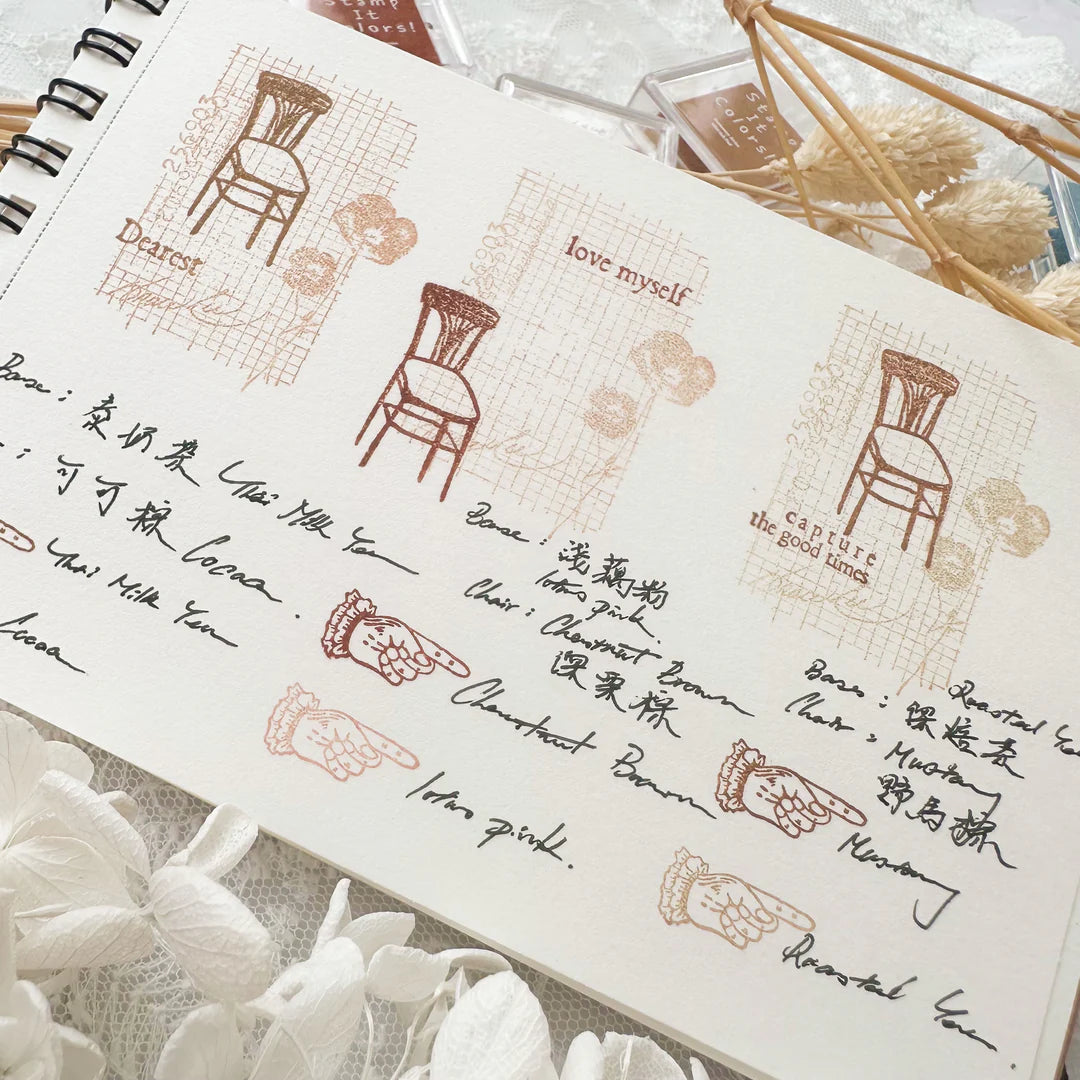 Stamp
It
Colors!
Stamp
It
Colors!
258903
Dearest
258903
love myself
258903
capture
the good times
Base : 泰奶茶 Thai Milk Yen
: 可可棕 Cocoa
Thai Milk Yen
Cocoa
Base : 浅藕粉
lotus pink
Chair : Chestnut Brown
深栗棕
Chestnut Brown
lotus pink.
Base : Roasted
深焙
Chair : Mustang
野馬棕
Mustang
Roasted Yen